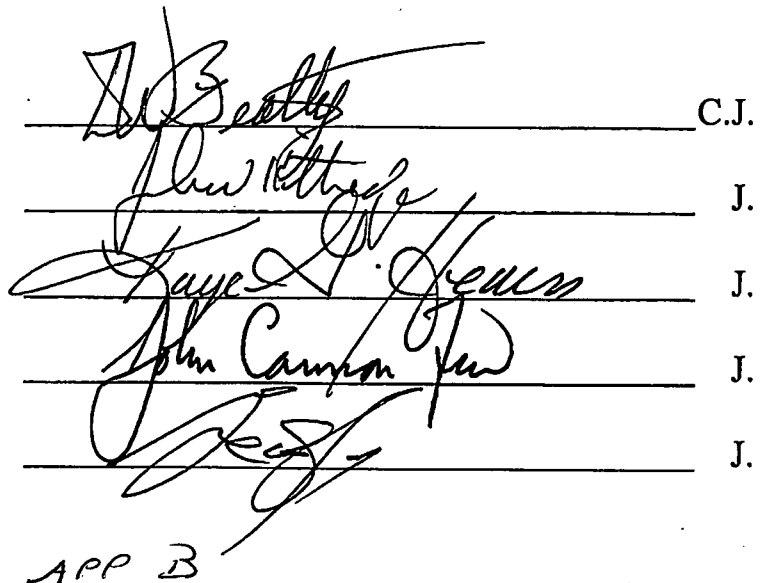 Beatty C.J.
John Kittredge J.
Kaye G. Hearn J.
John Cannon Few J.
J.
APP B